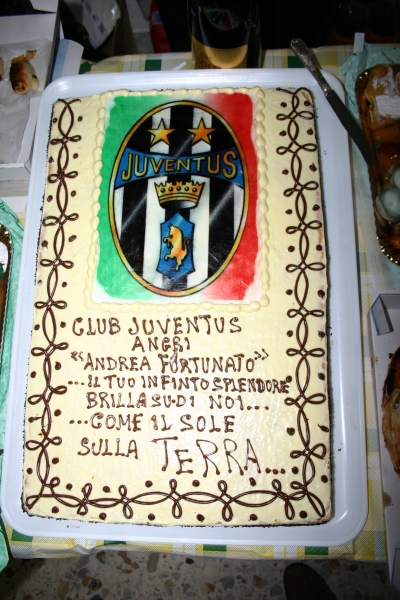 JUVENTUS
CLUB JUVENTUS
ANGRI
"ANDREA FORTUNATO"
...IL TUO INFINTO SPLENDORE
BRILLA SU DI NOI...
...COME IL SOLE
SULLA TERRA....